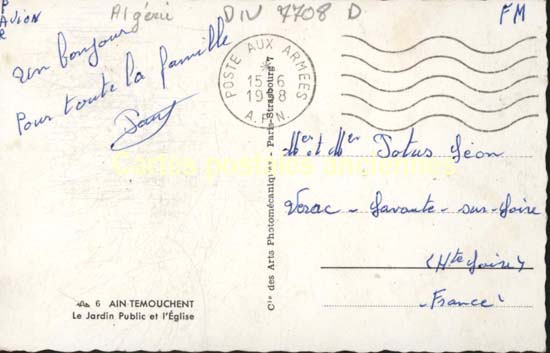 PAR
AVION
Algérie
DIV 7708 D
FM
Un bonjour
Pour toute la famille
POSTE AUX ARMEES
15-6
A.F.N.
Cie des Arts Photomécaniques - Paris-Strasbourg 7
Cartes postales anciennes
et Totus Léon
Lavoute - sur - Loire
(Hte Loire)
- France -
6 AIN-TEMOUCHENT
Le Jardin Public et l'Église